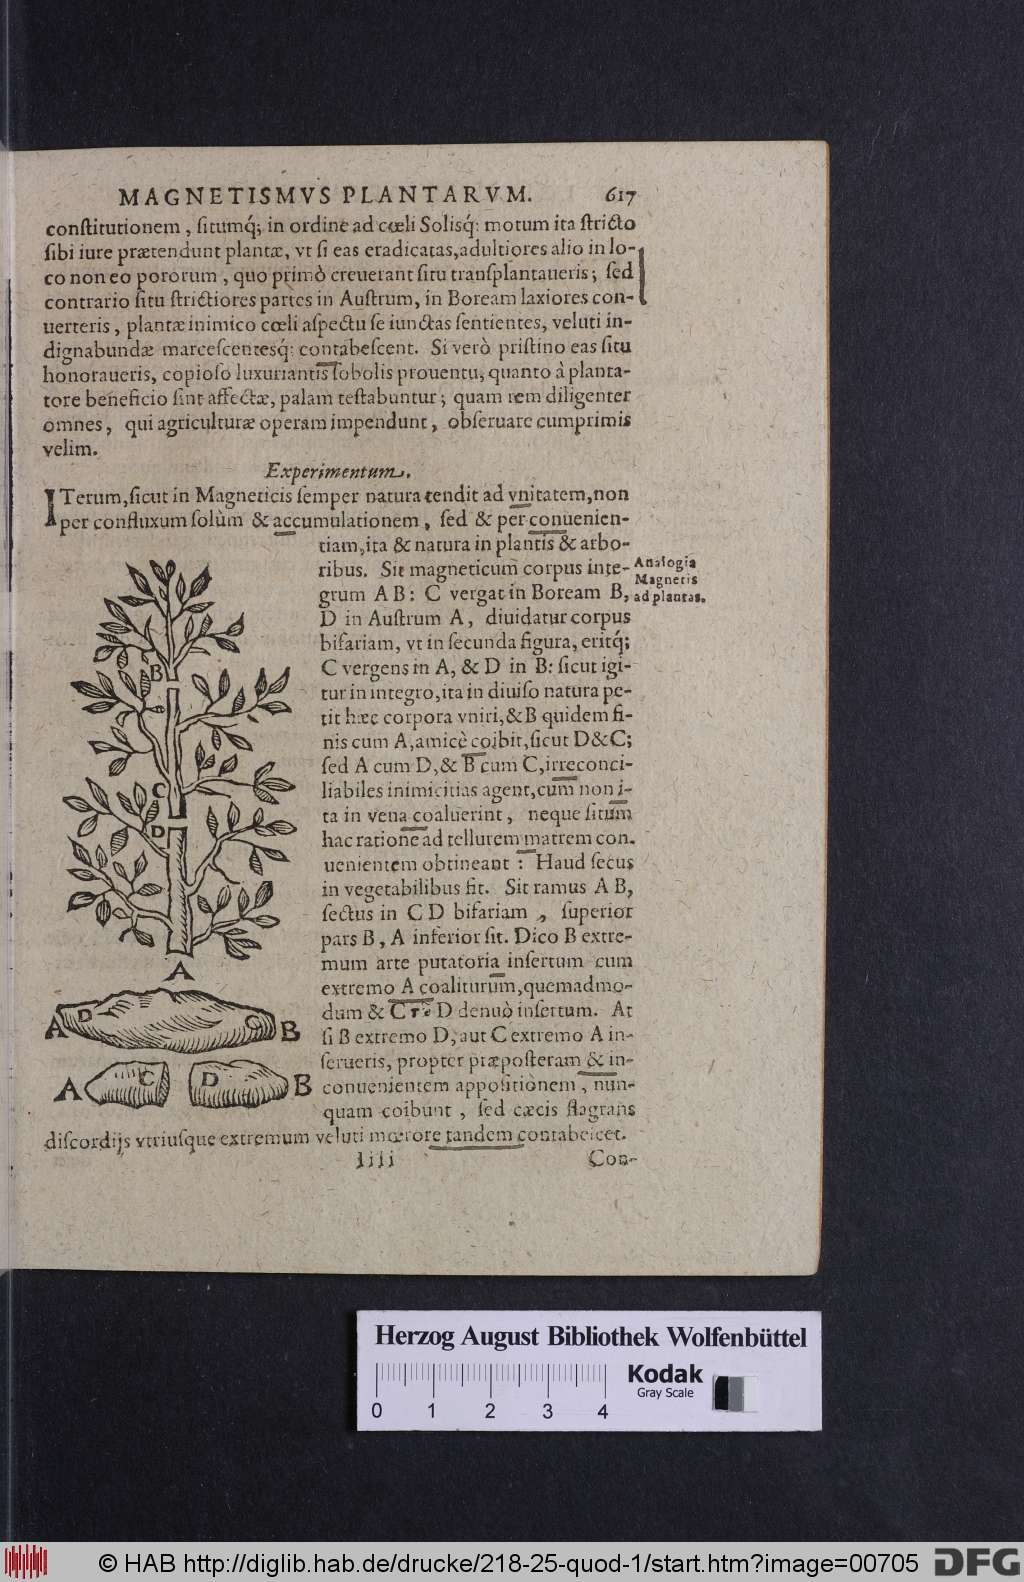 MAGNETISMVS PLANTARVM. 617
conſtitutionem, ſitumq́; in ordine ad cœli Solisq́: motum ita ſtricto
ſibi iure prætendunt plantæ, vt ſi eas eradicatas, adultiores alio in lo-
co non eo pororum, quo primò creuerant ſitu transplantaueris; ſed
contrario ſitu ſtrictiores partes in Auſtrum, in Boream laxiores con-
uerteris, plantæ inimico cœli aſpectu ſe iunctas ſentientes, veluti in-
dignabundæ marceſcentesq́: contabeſcent. Si verò priſtino eas ſitu
honoraueris, copioſo luxuriantis ſobolis prouentu, quanto à planta-
tore beneficio ſint affectæ, palam teſtabuntur; quam rem diligenter
omnes, qui agriculturæ operam impendunt, obſeruare cumprimis
velim.
Experimentum.
ITerum, ſicut in Magneticis ſemper natura tendit ad vnitatem, non
per confluxum ſolùm & accumulationem, ſed & per conuenien-
tiam, ita & natura in plantis & arbo-
ribus. Sit magneticum corpus inte-
grum A B: C vergat in Boream B,
D in Auſtrum A, diuidatur corpus
bifariam, vt in ſecunda figura, eritq́;
C vergens in A, & D in B: ſicut igi-
tur in integro, ita in diuiſo natura pe-
tit hæc corpora vniri, & B quidem fi-
nis cum A, amicè coibit, ſicut D & C;
ſed A cum D, & B cum C, irreconci-
liabiles inimicitias agent, cum non i-
ta in vena coaluerint, neque ſitum
hac ratione ad tellurem matrem con.
uenientem obtineant: Haud ſecus
in vegetabilibus fit. Sit ramus A B,
ſectus in C D bifariam, ſuperior
pars B, A inferior ſit. Dico B extre-
mum arte putatoria inſertum cum
extremo A coaliturum, quemadmo-
dum & C τῷ D denuò inſertum. At
ſi B extremo D, aut C extremo A in-
ſerueris, propter præpoſteram & in-
conuenientem appoſitionem, nun-
quam coibunt, ſed cæcis flagrans
diſcordijs vtriuſque extremum veluti mœrore tandem contabeſcet.
Iiii Con-
Analogia
Magnetis
ad plantas.
B
C
D
A
A D C B
A C D B
Herzog August Bibliothek Wolfenbüttel
Kodak
Gray Scale
0 1 2 3 4
© HAB http://diglib.hab.de/drucke/218-25-quod-1/start.htm?image=00705
DFG